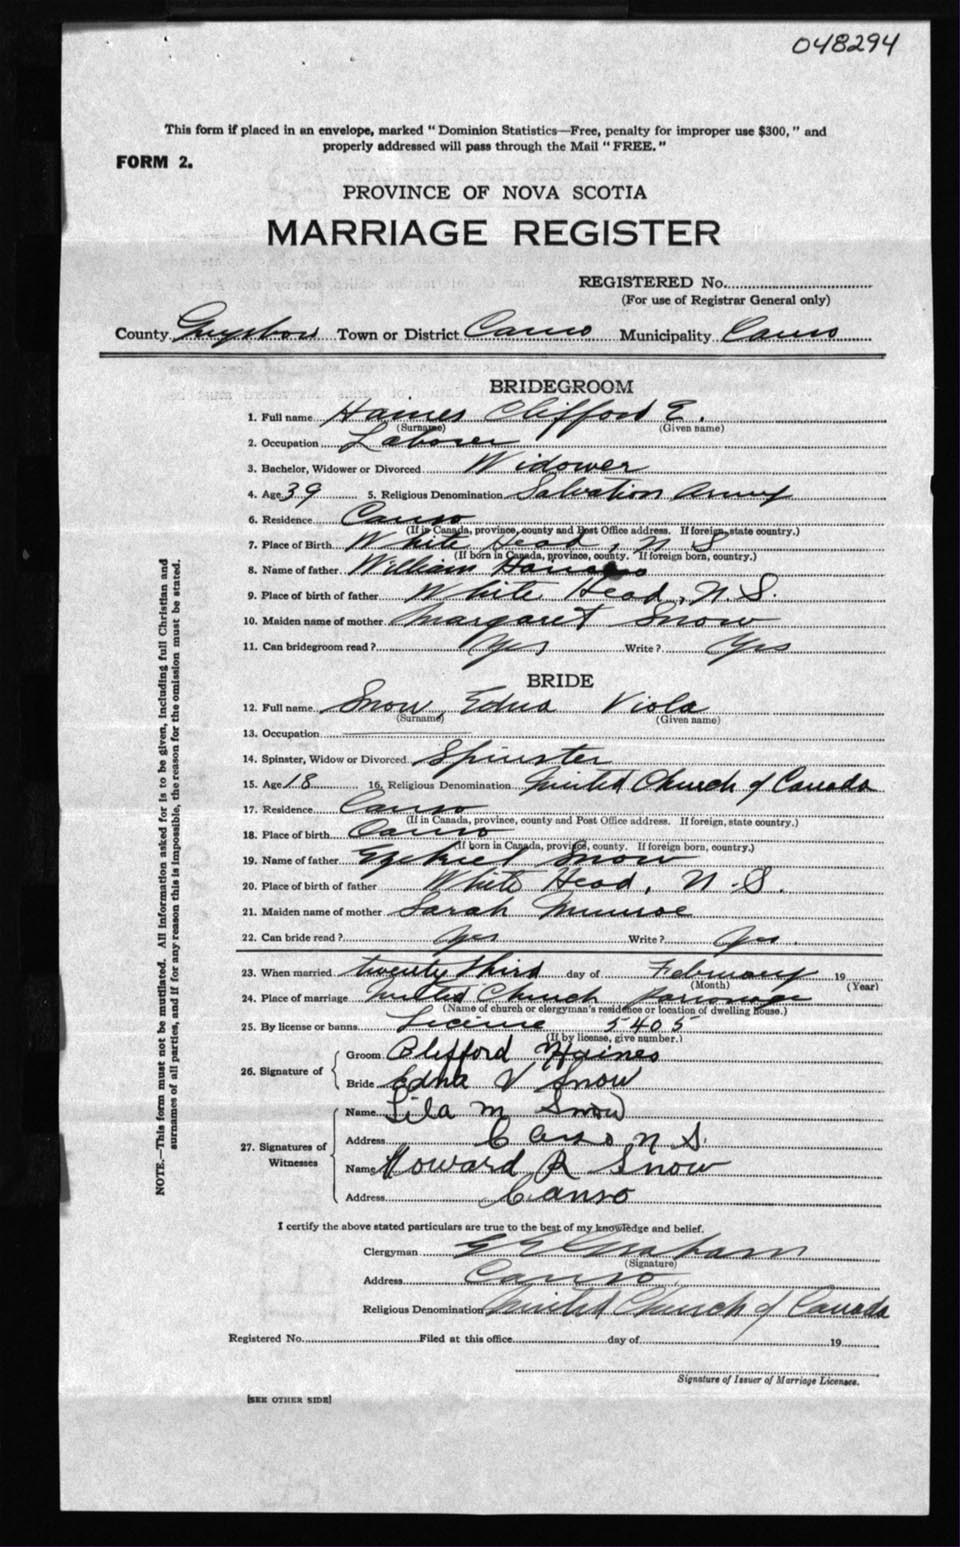 048294
This form if placed in an envelope, marked "Dominion Statistics—Free, penalty for improper use $300," and
properly addressed will pass through the Mail "FREE."
FORM 2.
PROVINCE OF NOVA SCOTIA
MARRIAGE REGISTER
REGISTERED No.
(For use of Registrar General only)
County Guysboro Town or District Canso Municipality Canso
BRIDEGROOM
1. Full name Haines Clifford E.
(Surname) (Given name)
2. Occupation Laborer
3. Bachelor, Widower or Divorced Widower
4. Age 39 5. Religious Denomination Salvation Army
6. Residence Canso
(If in Canada, province, county and Post Office address. If foreign, state country.)
7. Place of Birth White Head, N S
(If born in Canada, province, county. If foreign born, country.)
8. Name of father William
9. Place of birth of father White Head, N.S.
10. Maiden name of mother Margaret Snow
11. Can bridegroom read? Yes Write? Yes
BRIDE
12. Full name Snow, Edna Viola
(Surname) (Given name)
13. Occupation
14. Spinster, Widow or Divorced Spinster
15. Age 18 16. Religious Denomination United Church of Canada
17. Residence Canso
(If in Canada, province, county and Post Office address. If foreign, state country.)
18. Place of birth Canso
(If born in Canada, province, county. If foreign born, country.)
19. Name of father Ezekiel Snow
20. Place of birth of father White Head, N.S.
21. Maiden name of mother Sarah Munroe
22. Can bride read? Yes Write? Yes.
23. When married twenty third day of February 19
(Month) (Year)
24. Place of marriage United Church parsonage
(Name of church or clergyman's residence or location of dwelling house.)
25. By license or banns License 5405
(If by license, give number.)
26. Signature of
Groom Clifford Haines
Bride Edna V Snow
27. Signatures of Witnesses
Name Lila M Snow
Address Canso N S.
Name Howard R Snow
Address Canso
I certify the above stated particulars are true to the best of my knowledge and belief.
Clergyman E E Graham
(Signature)
Address Canso.
Religious Denomination United Church of Canada
Registered No. Filed at this office day of 19
Signature of Issuer of Marriage Licenses.
[SEE OTHER SIDE]
NOTE.—This form must not be mutilated. All information asked for is to be given, including full Christian and
surnames of all parties, and if for any reason this is impossible, the reason for the omission must be stated.